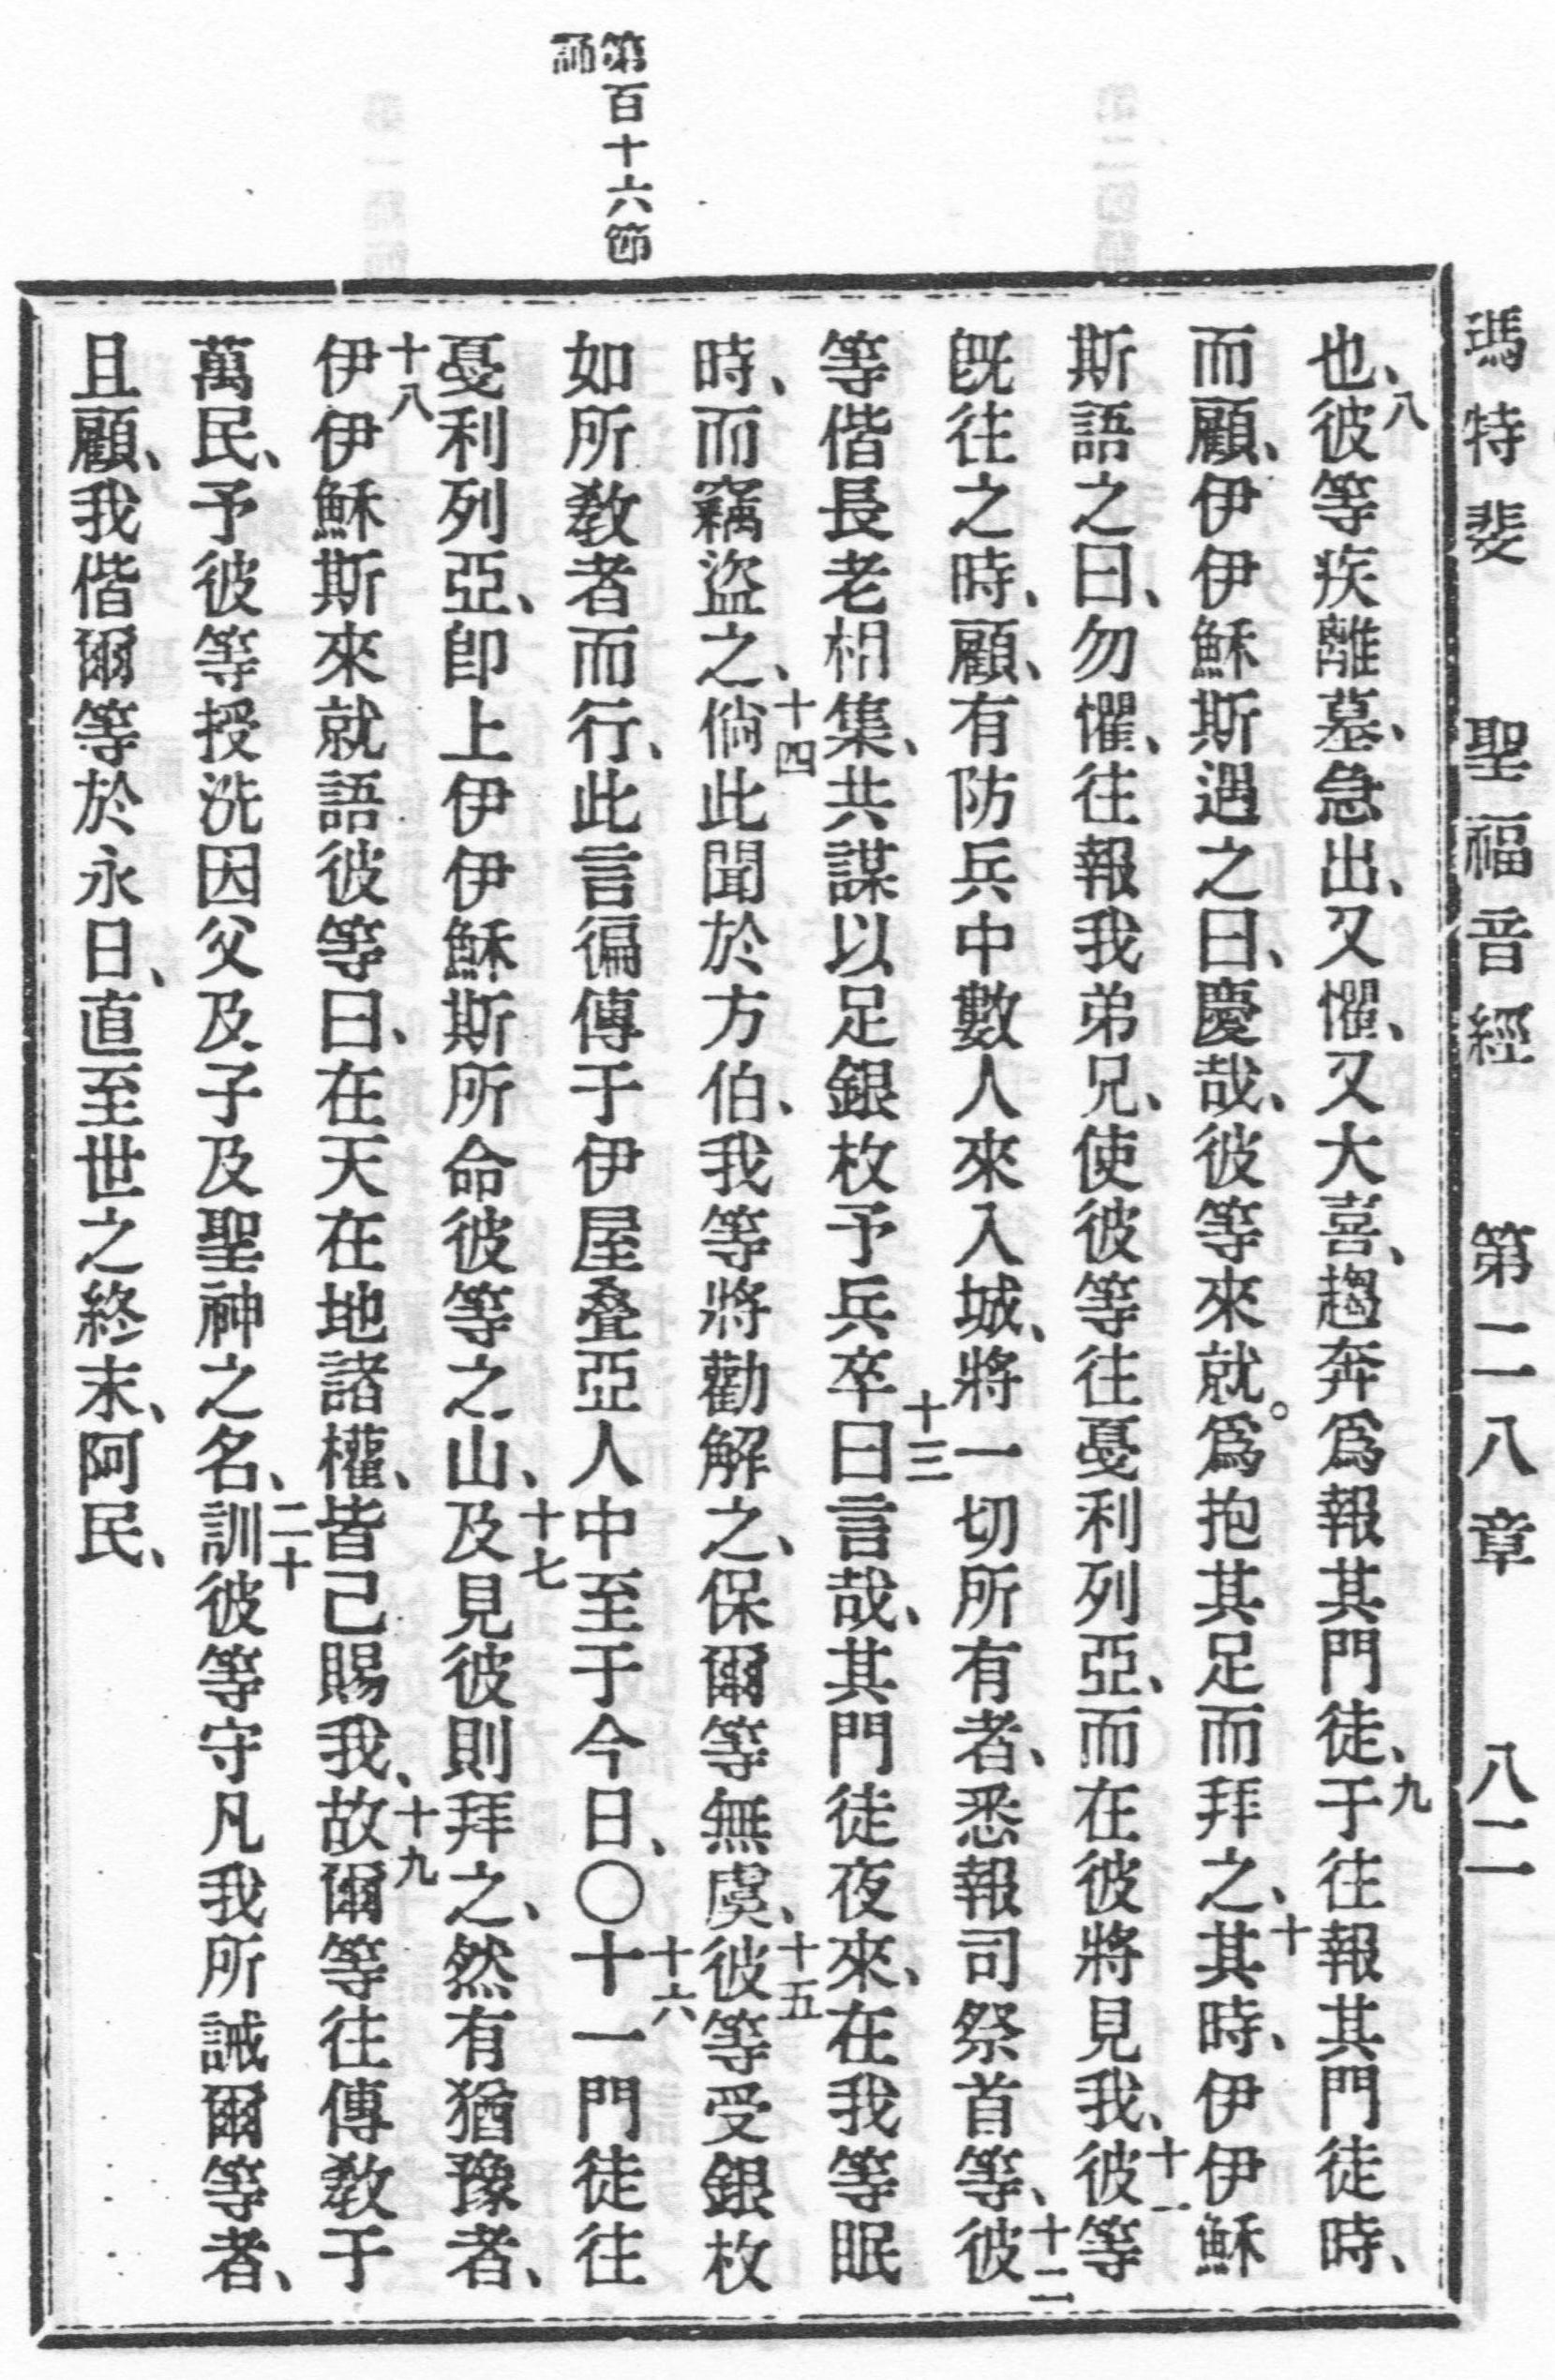 瑪特斐 聖福音經 第二十八章 八二
第百十六節
誦
也、八彼等疾離墓、急出、又懼、又大喜、趨奔爲報其門徒、九于往報其門徒時、
而顧、伊伊穌斯遇之曰、慶哉、彼等來就。爲抱其足而拜之、十其時、伊伊穌
斯語之曰、勿懼、往報我弟兄、使彼等往戞利列亞、而在彼將見我、十一彼等
旣往之時、顧、有防兵中數人來入城、將一切所有者、悉報司祭首等、十二彼
等偕長老相集、共謀以足銀枚予兵卒十三曰言哉、其門徒夜來、在我等眠
時、而竊盜之、十四倘此聞於方伯、我等將勸解之、保爾等無虞、十五彼等受銀枚
如所教者而行、此言徧傳于伊屋叠亞人中至于今日、〇十六十一門徒往
戞利列亞、卽上伊伊穌斯所命彼等之山、十七及見彼則拜之、然有猶豫者、
十八伊伊穌斯來就語彼等曰、在天在地諸權、皆己賜我、十九故爾等往傳教于
萬民、予彼等授洗因父及子及聖神之名、二十訓彼等守凡我所誡爾等者、
且顧、我偕爾等於永日、直至世之終末、阿民、